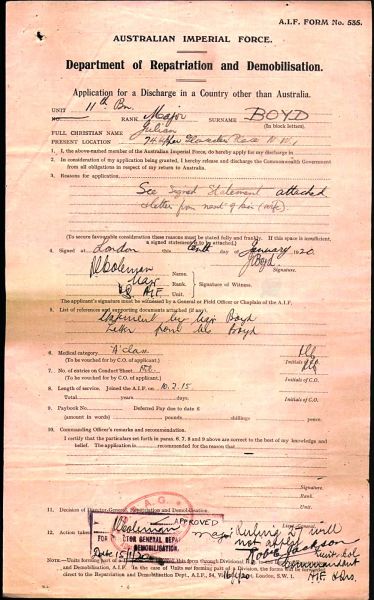 A.I.F. FORM No. 535.
AUSTRALIAN IMPERIAL FORCE.
Department of Repatriation and Demobilisation.
Application for a Discharge in a Country other than Australia.
UNIT 11th Bn. RANK Major SURNAME BOYD
No. (In block letters).
FULL CHRISTIAN NAME Julian
PRESENT LOCATION
1. I, the above-named member of the Australian Imperial Force, do hereby apply for my discharge in
2. In consideration of my application being granted, I hereby release and discharge the Commonwealth Government from all obligations in respect of my return to Australia.
3. Reasons for application
See Signed Statement attached
& letter from next of kin (wife)
(To secure favourable consideration these reasons must be stated fully and frankly. If this space is insufficient, a signed statement is to be attached.)
4. Signed at London this tenth day of January 1920.
J Boyd
Signature.
Name.
Major Rank. Signature of Witness.
Unit.
The applicant's signature must be witnessed by a General or Field Officer or Chaplain of the A.I.F.
5. List of references and supporting documents attached (if any)
Statement by Major Boyd
Letter from Mrs Boyd
6. Medical category "A" Class
(To be vouched for by C.O. of applicant). Initials of C.O.
7. No. of entries on Conduct Sheet Nil.
(To be vouched for by C.O. of applicant). Initials of C.O.
8. Length of service. Joined the A.I.F. on 10.2.15
Total years days.
9. Paybook No. Deferred Pay due to date £
(amount in words) pounds, shillings pence.
10. Commanding Officer's remarks and recommendation.
I certify that the particulars set forth in paras. 6, 7, 8 and 9 above are correct to the best of my knowledge and
belief. The application is recommended for the reason that
11. Decision of Director-General, Repatriation and Demobilisation.
A.G.
APPROVED
12. Action taken
FOR DIRECTOR GENERAL REPAT
DEMOBILISATION.
Date 15/1/20
Ruling D will
not apply
Commandant
16/1/20
AIF
Note.
and Demobilisation, A.I.F.
direct to the Repatriation and Demobilisation Dept., A.I.F., 54, Victoria London, S.W. 1.